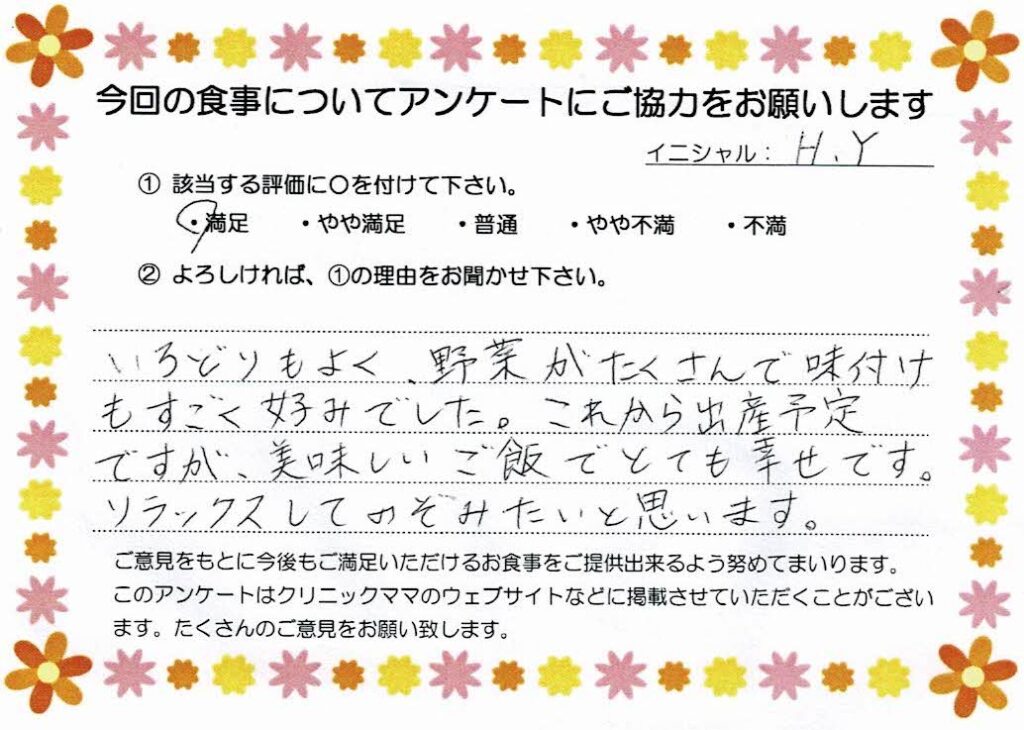 今回の食事についてアンケートにご協力をお願いします
イニシャル： H.Y
① 該当する評価に〇を付けて下さい。
・満足 ・やや満足 ・普通 ・やや不満 ・不満
② よろしければ、①の理由をお聞かせ下さい。
いろどりもよく、野菜がたくさんで味付け
もすごく好みでした。これから出産予定
ですが、美味しいご飯でとても幸せです。
リラックスしてのぞみたいと思います。
ご意見をもとに今後もご満足いただけるお食事をご提供出来るよう努めてまいります。
このアンケートはクリニックママのウェブサイトなどに掲載させていただくことがござい
ます。たくさんのご意見をお願い致します。